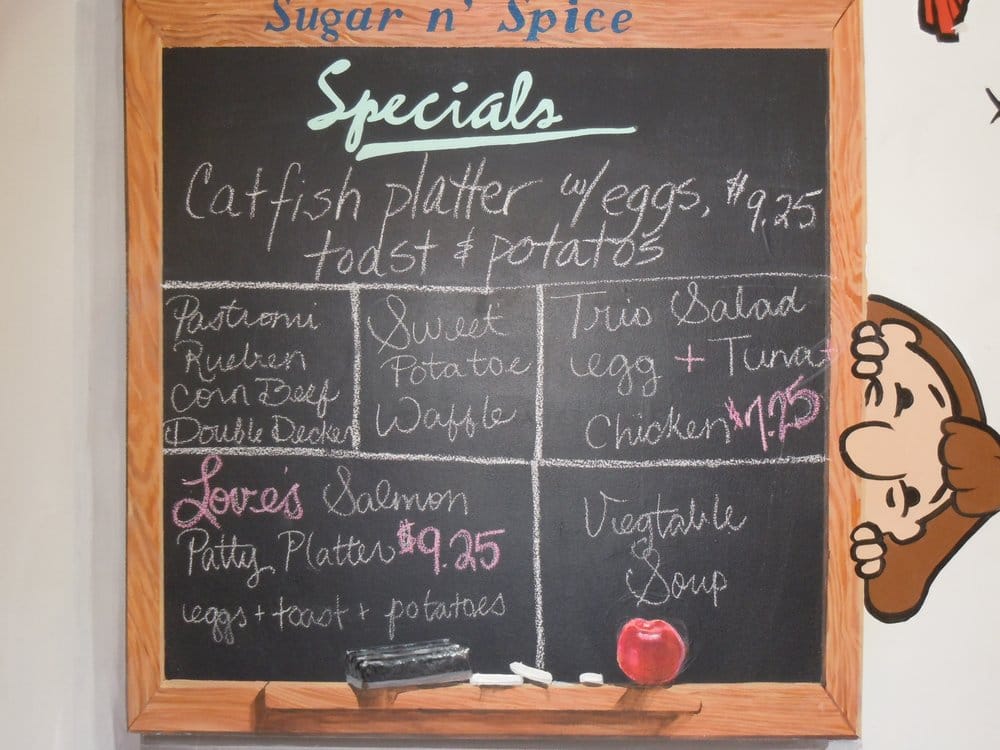 Sugar n' Spice
Specials
Catfish platter w/eggs, $9.25
toast & potatos
Pastromi
Rueben
Corn Beef
Double Decker
Sweet
Potatoe
Waffle
Trio Salad
egg + Tuna +
Chicken $7.25
Love's Salmon
Patty Platter $9.25
eggs + toast + potatoes
Viegtable
Soup